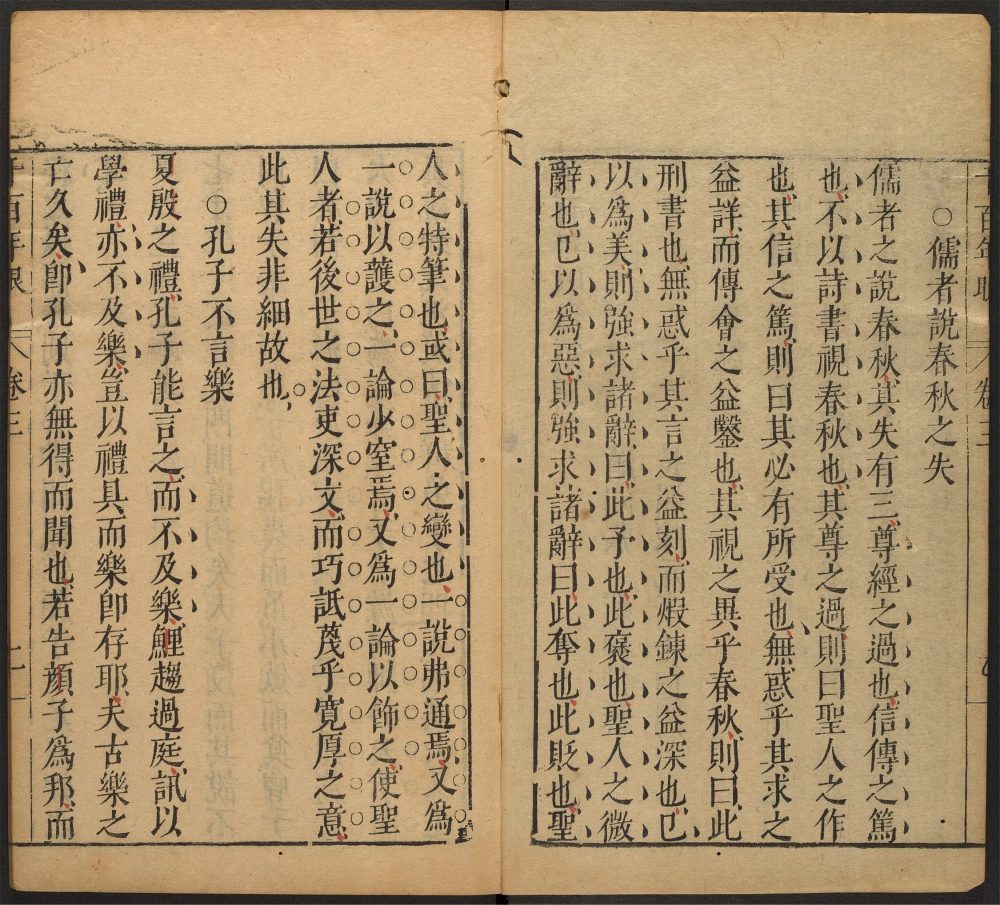 千百年眼 卷三
○儒者說春秋之失
儒者之說春秋其失有三尊經之過也信傳之篤
也不以詩書視春秋也其尊之過則曰聖人之作
也其信之篤則曰其必有所受也無惑乎其求之
益詳而傳會之益鑿也其視之異乎春秋則曰此
刑書也無惑乎其言之益刻而煆鍊之益深也已
以爲美則強求諸辭曰此予也此褒也聖人之微
辭也已以爲惡則強求諸辭曰此奪也此貶也聖
人之特筆也或曰聖人之變也一說弗通焉又爲
一說以護之一論少窒焉又爲一論以飾之使聖
人者若後世之法吏深文而巧詆蔑乎寬厚之意
此其失非細故也
○孔子不言樂
夏殷之禮孔子能言之而不及樂鯉趨過庭訊以
學禮亦不及樂豈以禮具而樂卽存耶夫古樂之
亡久矣卽孔子亦無得而聞也若告顏子爲邦而
千百年眼 卷三 二